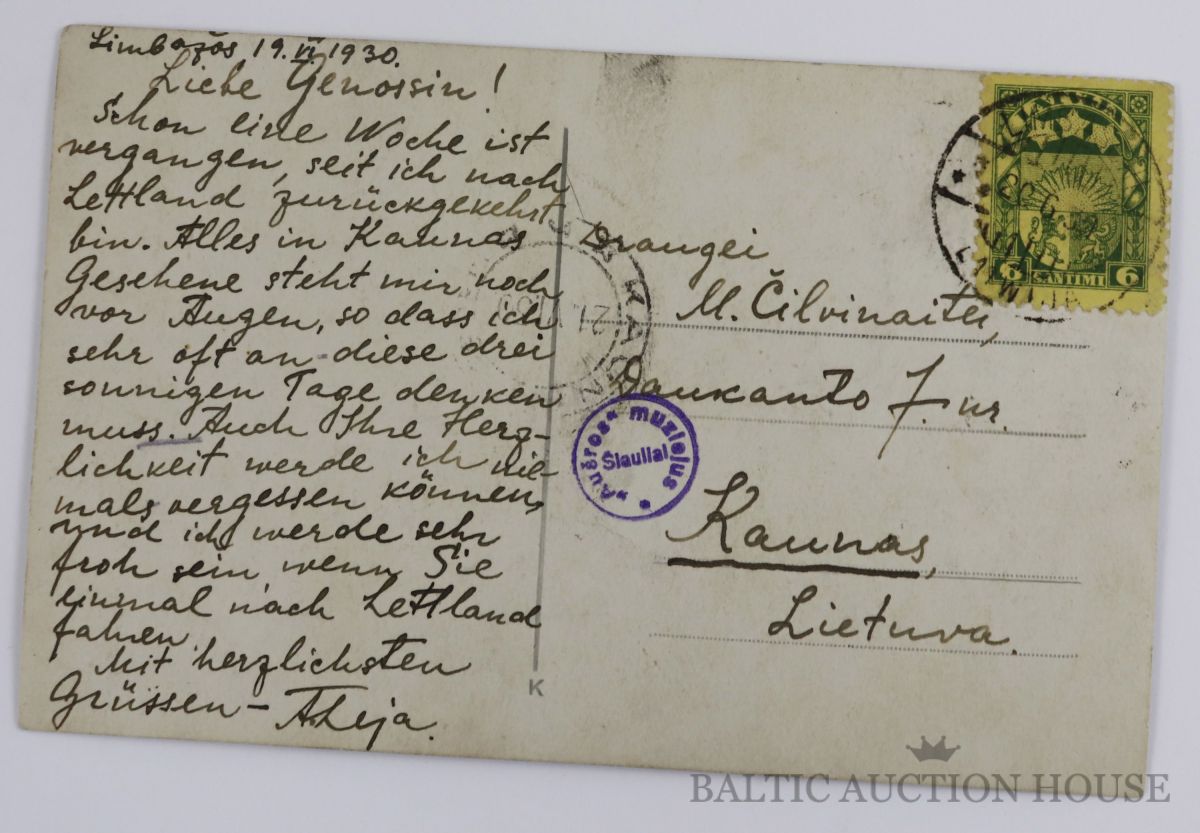 Limbažos 19. VI. 1930.
Liebe Genossin!
Schon eine Woche ist
vergangen, seit ich nach
Lettland zurückgekehrt
bin. Alles in Kaunas
Gesehene steht mir noch
vor Augen, so dass ich
sehr oft an diese drei
sonnigen Tage denken
muss. Auch Ihre Herz-
lichkeit werde ich nie-
mals vergessen können,
und ich werde sehr
froh sein, wenn Sie
einmal nach Lettland
fahren
Mit herzlichsten
Grüssen – A. Leja.
K
LATVIJA
6 SANTIMI 6
LATVIJA
KAUNAS
21
"Aušros" muziejus
Šiauliai
Draugei
M. Čilvinaitei,
Daukanto 7. ur.
Kaunas,
Lietuva.
BALTIC AUCTION HOUSE